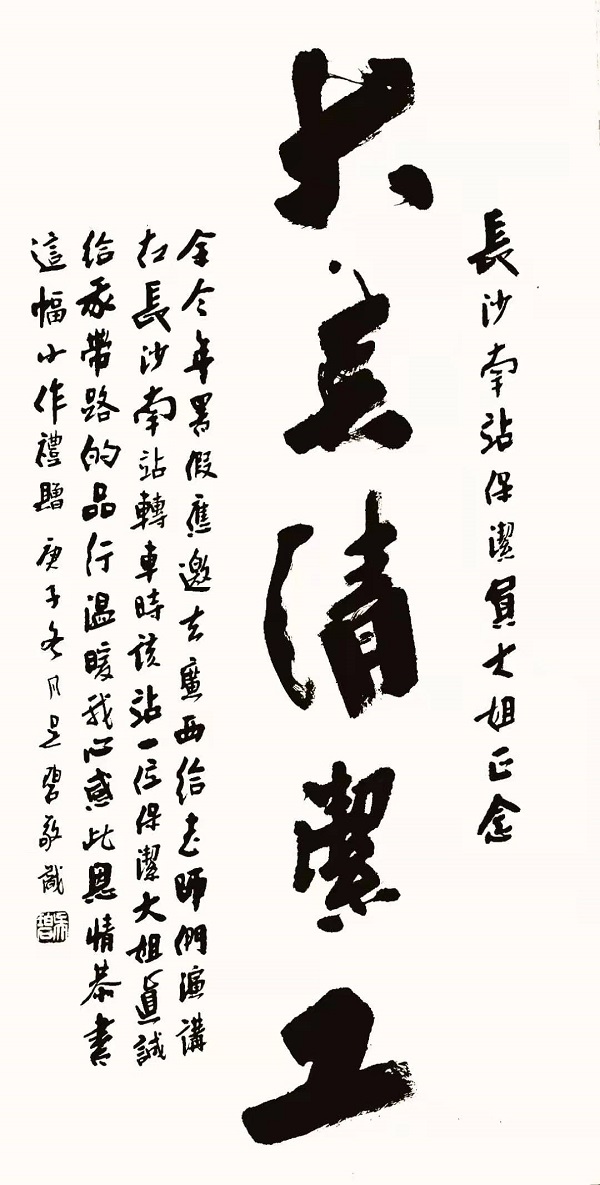 長沙南站保潔員大姐正念
大美清潔工
余今年暑假應邀去廣西給老師們演講
在長沙南站轉車時該站一位保潔大姐真誠
給我帶路的品行溫暖我心感此恩情恭書
這幅小作禮贈 庚子冬月吳碧敬識